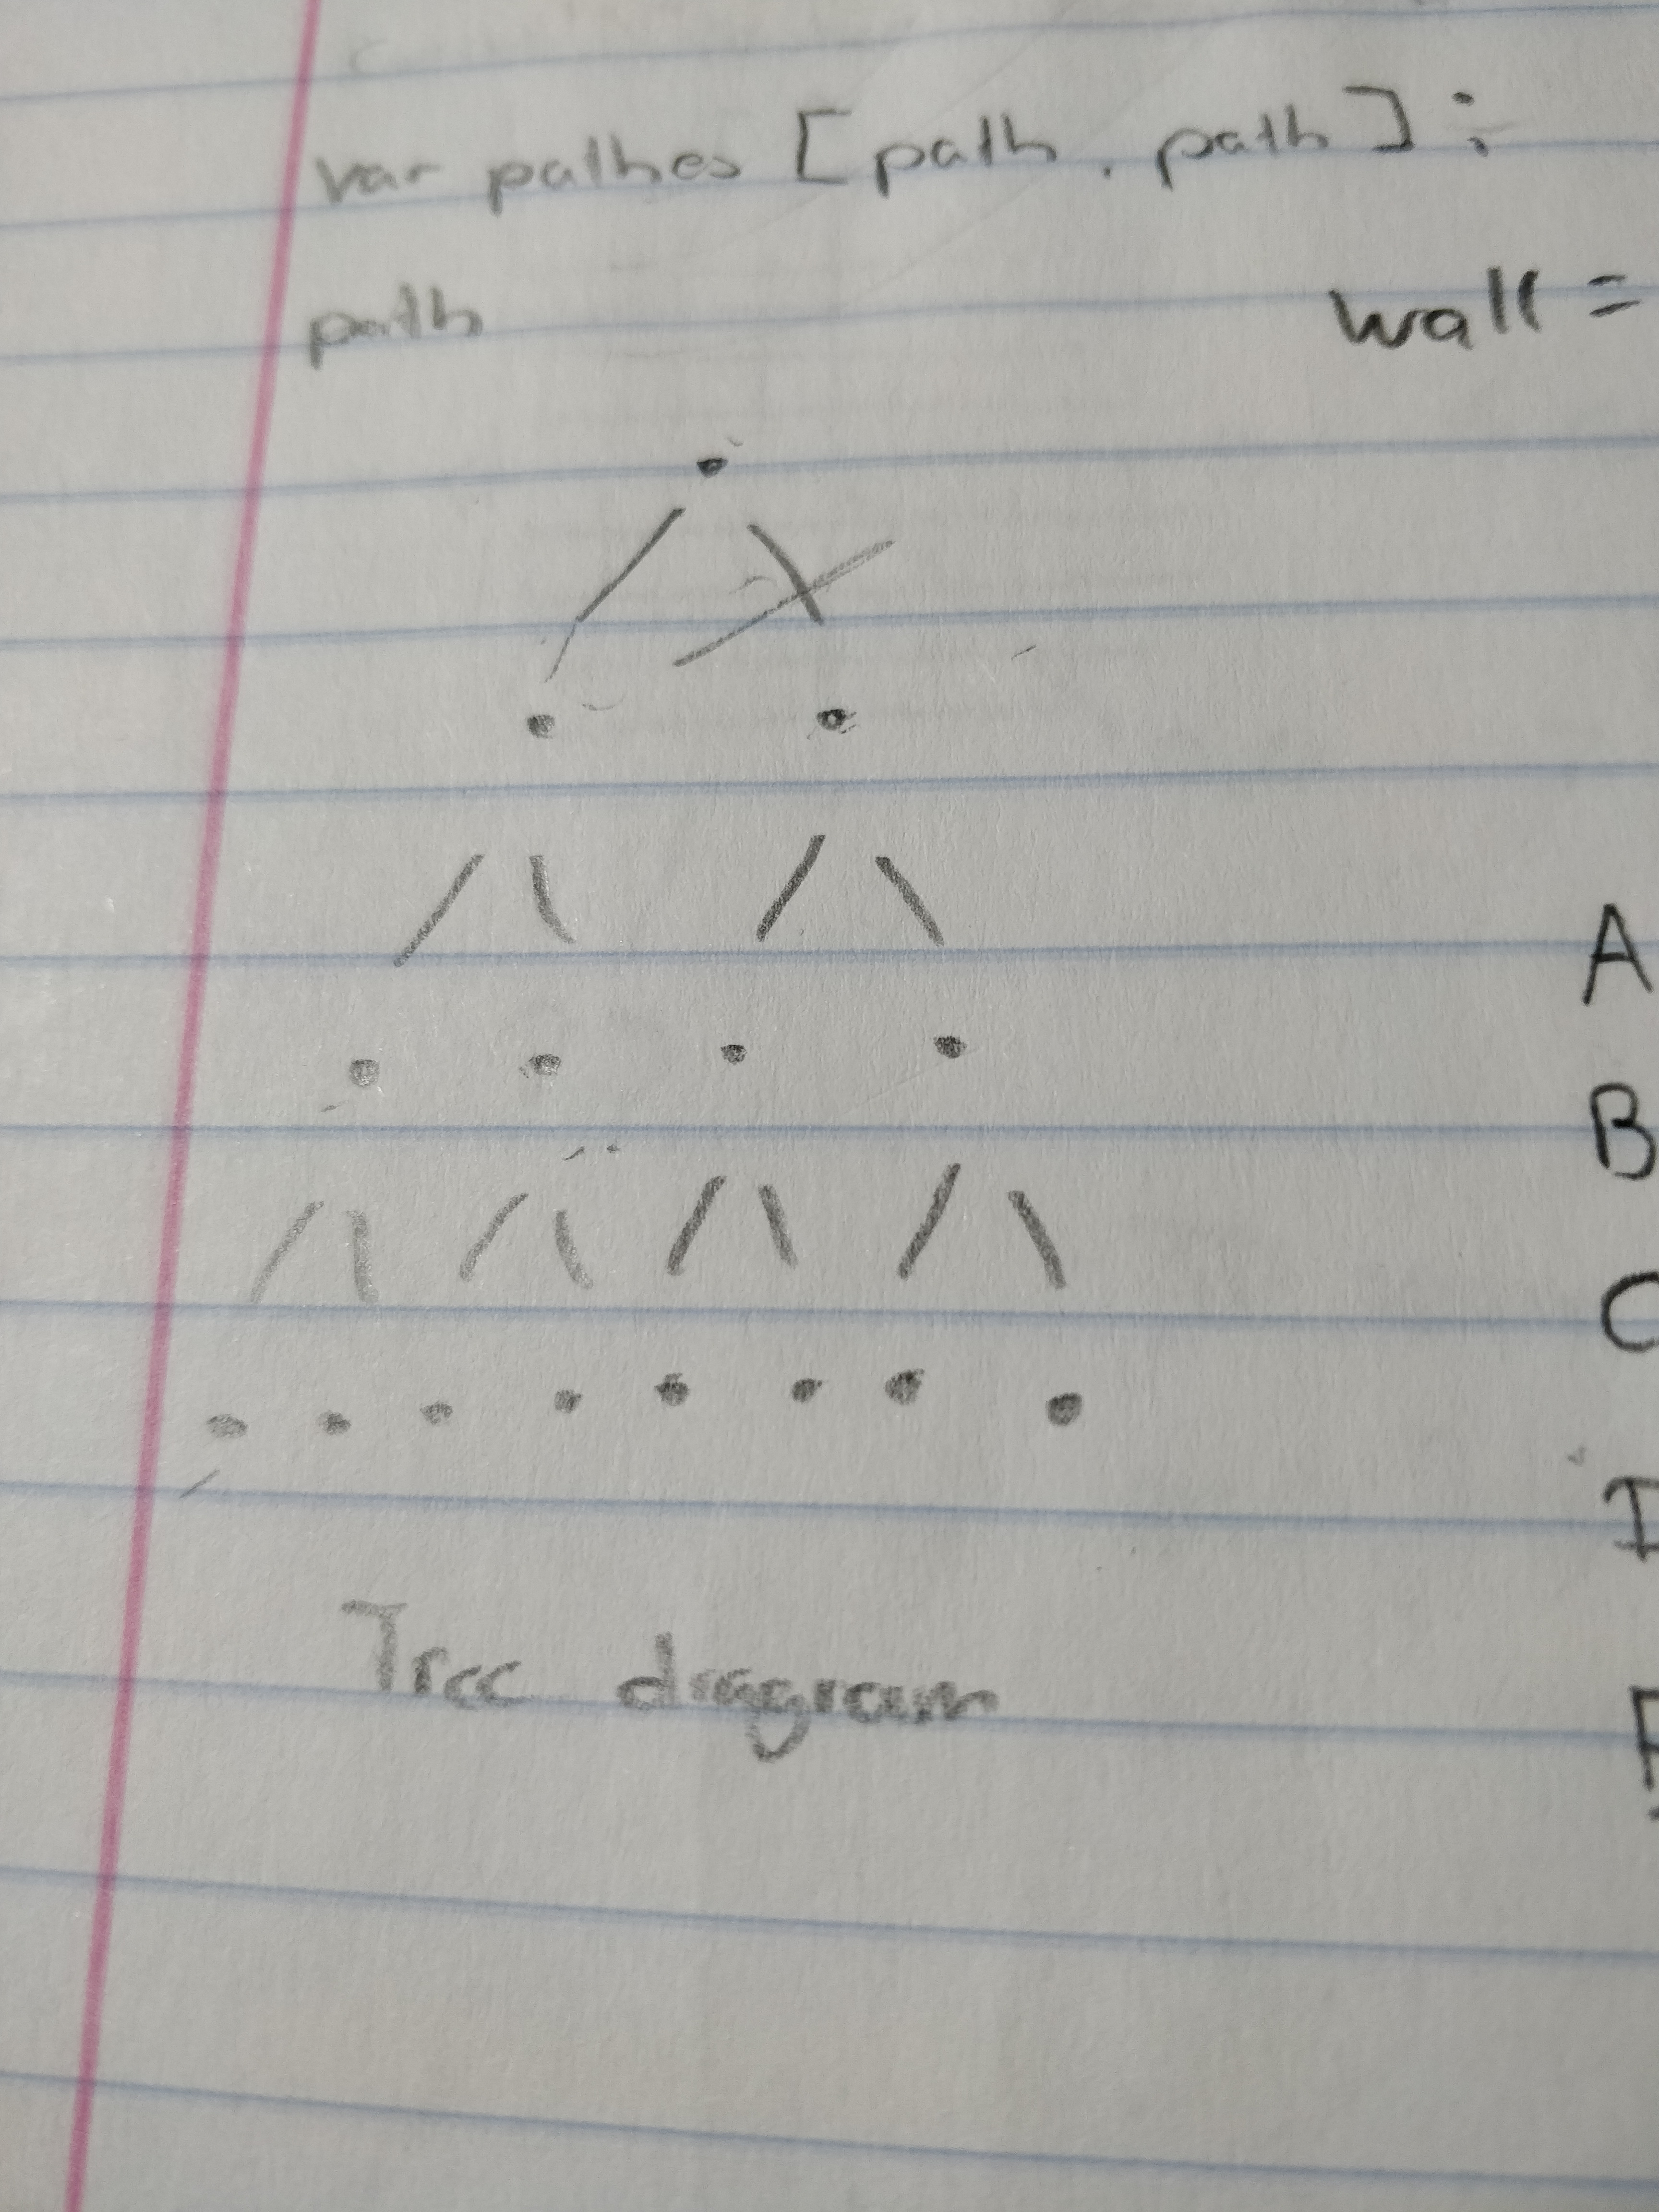 var pathes [path, path];
path
wall =
A
B
C
D
Tree diagram